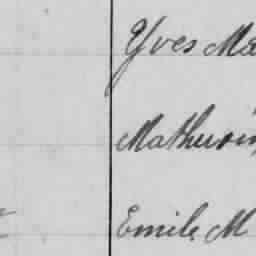 Yves Ma
Mathurin
Emile M